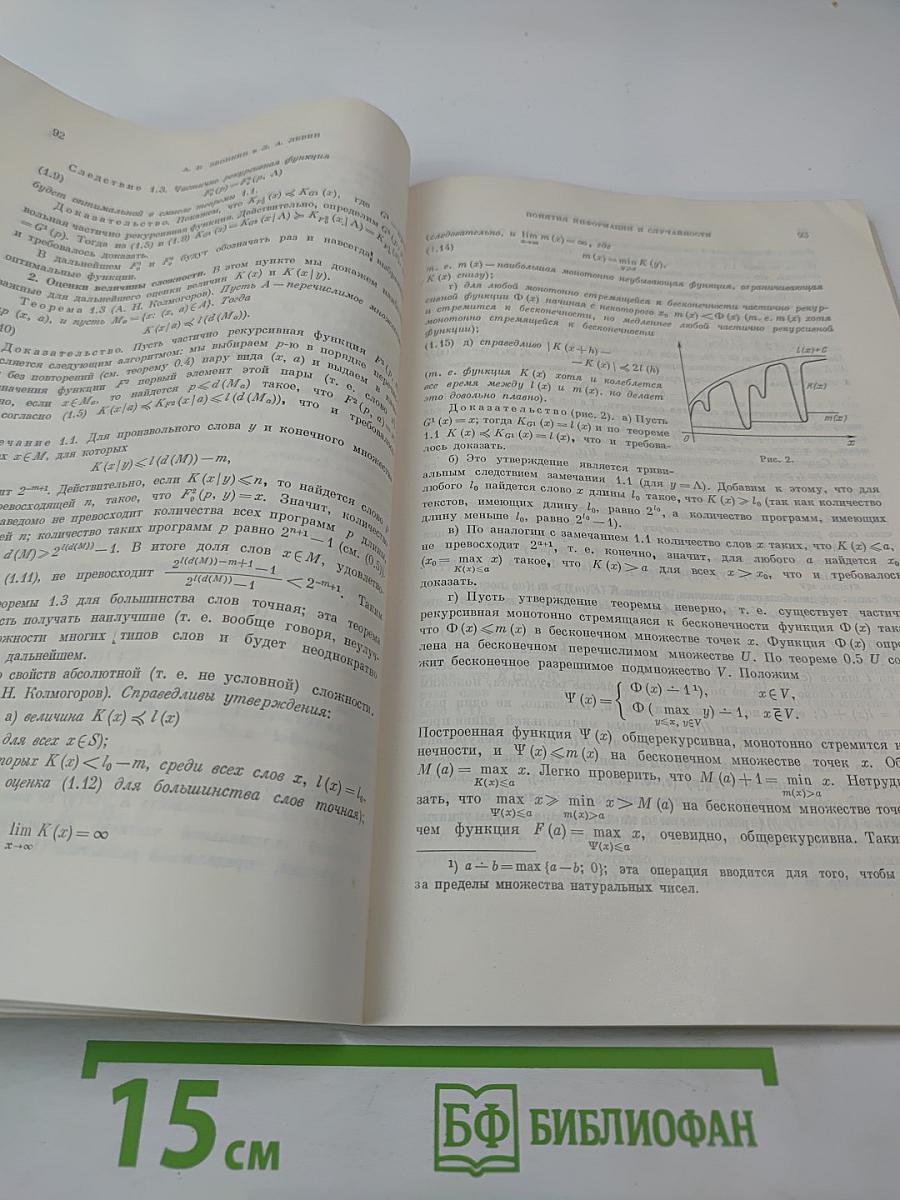 92
А. К. ЗВОНКИН и Л. А. ЛЕВИН
Следствие 1.3. Частично рекурсивная функция
(1.9)
будет оптимальной в смысле теоремы 1.1.
Доказательство. Покажем, что
вольная частично рекурсивная функция. Действительно, определим
= G¹(p). Тогда из (1.5) и (1.9)
и требовалось доказать.
В дальнейшем и будут обозначать раз и навсегда
оптимальные функции.
2. Оценки величины сложности. В этом пункте мы докажем
важные для дальнейшего оценки величин K(x) и K(x|y).
Теорема 1.3 (А. Н. Колмогоров). Пусть A — перечислимое
p (x, a), и пусть Mₐ = {x: (x, a) ∈ A}. Тогда
10) K(x|a) ≼ l(d(Mₐ)).
Доказательство. Пусть частично рекурсивная функция
следующим алгоритмом: мы выбираем p-ю в порядке
без повторений (см. теорему 0.4) пару вида (x, a) и выдаем
значения функции первый элемент этой пары (т. е. слово
но, если x∈Mₐ, то найдется p ⩽ d(Mₐ) такое, что
согласно (1.5) ⩽ l(d(Mₐ)), что и
ечание 1.1. Для произвольного слова y и конечного
x∈M, для которых
K(x|y) ⩽ l(d(M)) − m,
ит 2⁻ᵐ⁺¹. Действительно, если K(x|y) ⩽ n, то найдется слово
ревосходящей n, такое, что F₀²(p, y) = x. Значит,
аведомо не превосходит количества всех программ p длины
ей n; количество таких программ p равно 2ⁿ⁺¹ − 1 (см. (0.3)).
d(M) ⩾ 2^{l(d(M))} − 1. В итоге доля слов x∈M,
(1.11), не превосходит (2^{l(d(M))−m+1} − 1)/(2^{l(d(M))} − 1) < 2⁻ᵐ⁺¹. Таким
оремы 1.3 для большинства слов точная; эта теорема
сть получать наилучшие (т. е. вообще говоря, неулуч-
ожности многих типов слов и будет неоднократно
дальнейшем.
о свойств абсолютной (т. е. не условной) сложности.
Н. Колмогоров). Справедливы утверждения:
а) величина K(x) ≼ l(x)
для всех x∈S);
торых K(x) < l₀ − m, среди всех слов x, l(x) = l₀,
оценка (1.12) для большинства слов точная);
lim K(x) = ∞
x→∞
ПОНЯТИЯ ИНФОРМАЦИИ И СЛУЧАЙНОСТИ 93
(следовательно, и lim m(x) = ∞, где
x→∞
(1.14) m(x) = min K(y),
y⩾x
т. е. m(x) — наибольшая монотонно неубывающая функция, ограничивающая
K(x) снизу);
г) для любой монотонно стремящейся к бесконечности частично рекур-
сивной функции Φ(x) начиная с некоторого x₀ m(x) < Φ(x) (т. е. m(x) хотя
и стремится к бесконечности, но медленнее любой частично рекурсивной
монотонно стремящейся к бесконечности
функции);
(1.15) д) справедливо |K(x+h) −
− K(x)| ≼ 2l(h)
(т. е. функция K(x) хотя и колеблется
все время между l(x) и m(x), но делает
это довольно плавно).
l(x)+C
K(x)
m(x)
0
x
Рис. 2.
Доказательство (рис. 2). а) Пусть
G¹(x) = x; тогда K_{G¹}(x) = l(x) и по теореме
1.1 K(x) ≼ K_{G¹}(x) = l(x), что и требова-
лось доказать.
б) Это утверждение является триви-
альным следствием замечания 1.1 (для y = Λ). Добавим к этому, что для
любого l₀ найдется слово x длины l₀ такое, что K(x) ⩾ l₀ (так как количество
текстов, имеющих длину l₀, равно 2^{l₀}, а количество программ, имеющих
длину меньше l₀, равно 2^{l₀} − 1).
в) По аналогии с замечанием 1.1 количество слов x таких, что K(x) ⩽ a,
не превосходит 2ᵃ⁺¹, т. е. конечно, значит, для любого a найдется x₀
(x₀ = max x) такое, что K(x) > a для всех x > x₀, что и требовалось
K(x)⩽a
доказать.
г) Пусть утверждение теоремы неверно, т. е. существует частич
рекурсивная монотонно стремящаяся к бесконечности функция Φ(x) так
что Φ(x) ⩽ m(x) в бесконечном множестве точек x. Функция Φ(x) опре
лена на бесконечном перечислимом множестве U. По теореме 0.5 U со
жит бесконечное разрешимое подмножество V. Положим
Ψ(x) = { Φ(x) ∸ 1¹), x∈V,
Φ( max y) ∸ 1, x∉V.
y⩽x, y∈V
Построенная функция Ψ(x) общерекурсивна, монотонно стремится к
нечности, и Ψ(x) ⩽ m(x) на бесконечном множестве точек x. Об
M(a) = max x. Легко проверить, что M(a) + 1 = min x. Нетрудн
K(x)⩽a m(x)>a
зать, что max x ⩾ min x > M(a) на бесконечном множестве точе
Ψ(x)⩽a m(x)>a
чем функция F(a) = max x, очевидно, общерекурсивна. Таки
Ψ(x)⩽a
¹) a ∸ b = max {a − b; 0}; эта операция вводится для того, чтобы
за пределы множества натуральных чисел.
15 см
БФ БИБЛИОФАН